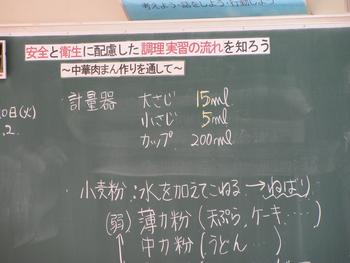 考えよう・話をしよう・行動しよう
安全と衛生に配慮した調理実習の流れを知ろう
～中華肉まん作りを通して～
計量器 大さじ 15ml
小さじ 5ml
カップ 200ml
0日(火)
2.
小麦粉:水を加えてこねる→ねばり
(弱) 薄力粉(天ぷら、ケーキ....)
中力粉(うどん...